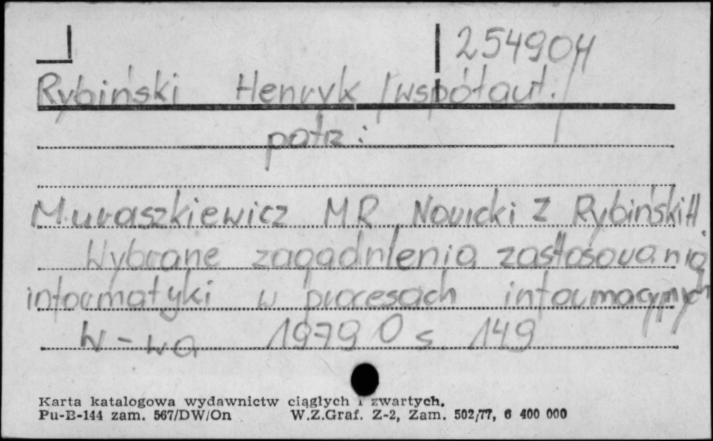 254904
Rybiński Henryk /współaut./
patrz:
Muraszkiewicz M.R. Nowicki Z Rybiński H.
Wybrane zagadnienia zastosowania
informatyki w procesach informacyjnych
W-wa 1979 O s 149
Karta katalogowa wydawnictw ciągłych i zwartych.
Pu-B-144 zam. 567/DW/On W.Z.Graf. Z-2, Zam. 502/77, 6 400 000